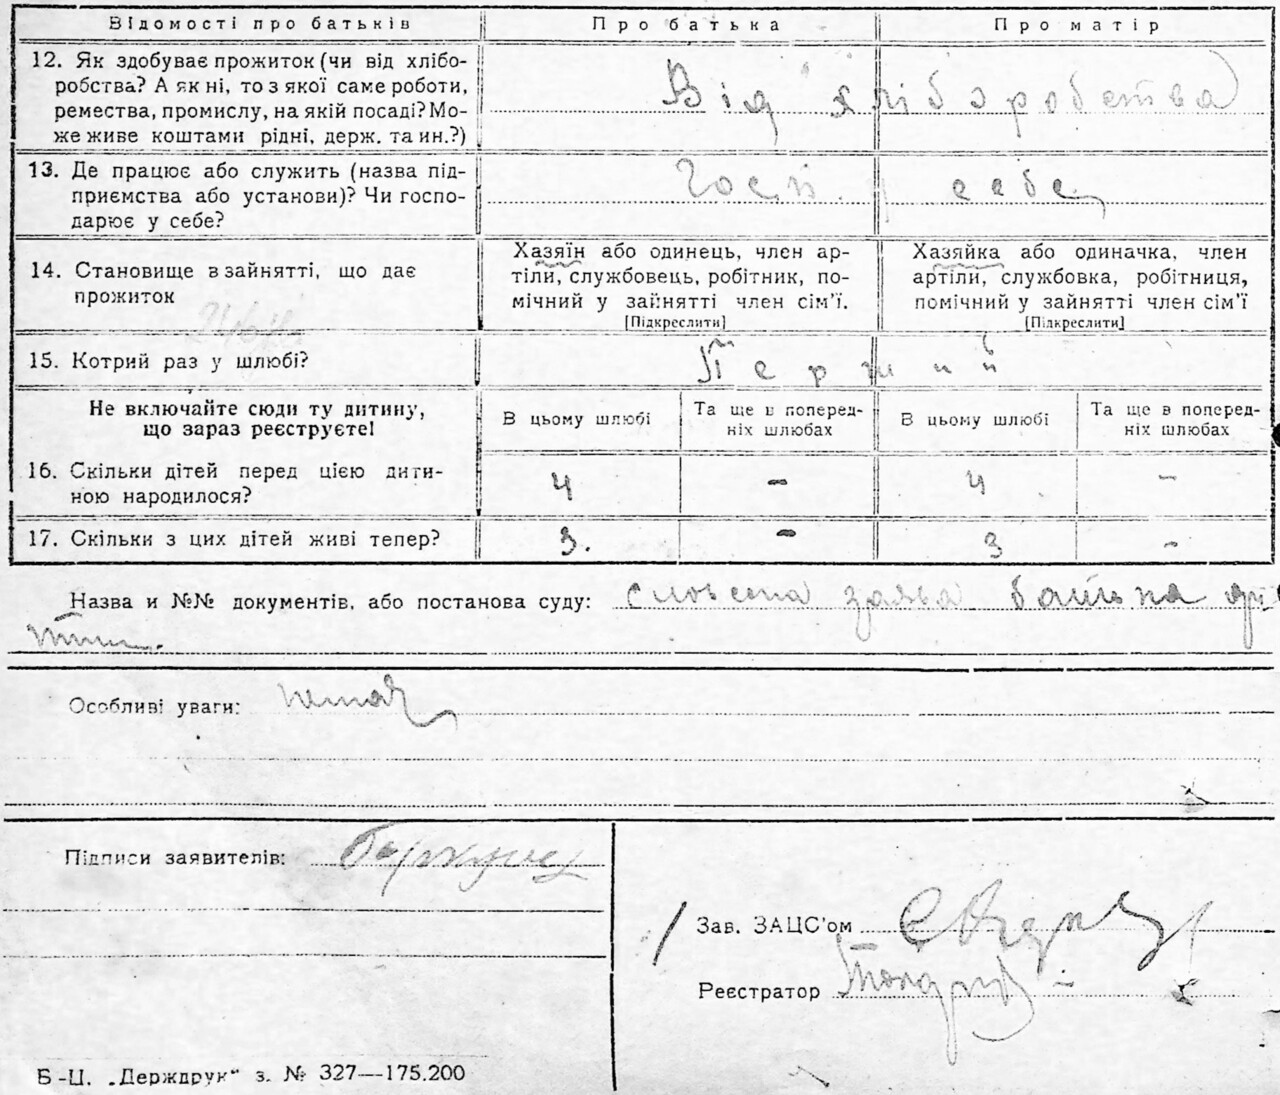 Відомості про батьків Про батька Про матір
12. Як здобуває прожиток (чи від хлібо-
робства? А як ні, то з якої саме роботи,
ремества, промислу, на якій посаді? Мо-
же живе коштами рідні, держ. та ин.?)
Від хліборобства
13. Де працює або служить (назва під-
приємства або установи)? Чи госпо-
дарює у себе?
Госп. у себе
14. Становище в зайнятті, що дає
прожиток
Хазяїн або одинець, член ар-
тіли, службовець, робітник, по-
мічний у зайнятті член сім'ї.
[Підкреслити]
Хазяйка або одиначка, член
артіли, службовка, робітниця,
помічний у зайнятті член сім'ї
[Підкреслити]
15. Котрий раз у шлюбі? Перший
Не включайте сюди ту дитину,
що зараз реєструєте!
В цьому шлюбі
Та ще в поперед-
ніх шлюбах
В цьому шлюбі
Та ще в поперед-
ніх шлюбах
16. Скільки дітей перед цією дити-
ною народилося?
4 - 4 -
17. Скільки з цих дітей живі тепер? 3. - 3 -
Назва и №№ документів, або постанова суду: словесна заява батька
Особливі уваги: немає
Підписи заявителів:
Зав. ЗАЦС'ом
Реєстратор
Б-Ц. „Держдрук" з. № 327—175.200